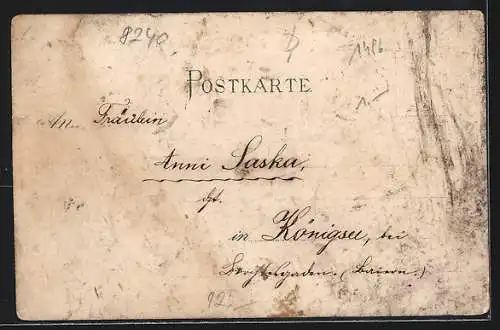 8240
1486
POSTKARTE.
An Fräulein
Anni Saska,
in Königsee, bei
Berchtesgaden. (Baiern.)